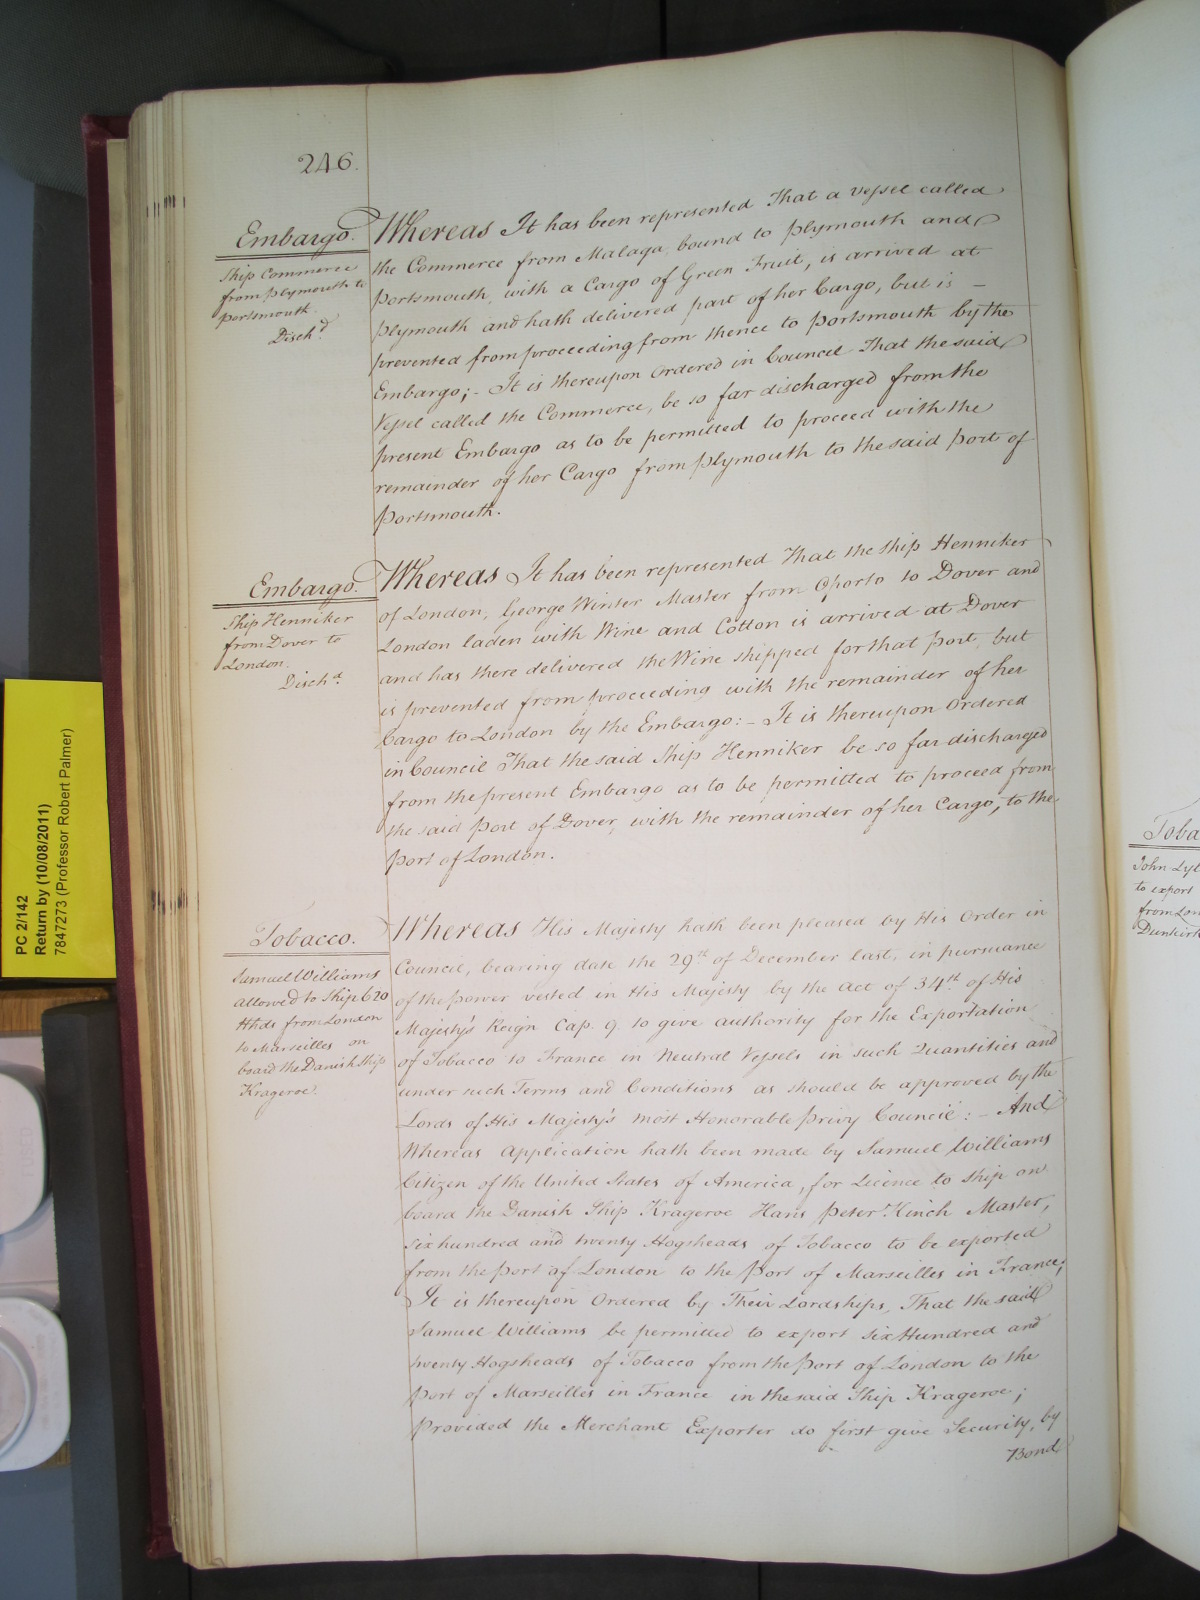 246.
Embargo.
Ship Commerce
from Plymouth to
Portsmouth.
Disch.d
Whereas It has been represented That a Vessel called
the Commerce from Malaga, bound to Plymouth and
Portsmouth, with a Cargo of Green Fruit, is arrived at
Plymouth and hath delivered part of her Cargo, but is –
prevented from proceeding from thence to Portsmouth by the
Embargo; – It is thereupon Ordered in Council That the said
Vessel called the Commerce, be so far discharged from the
present Embargo as to be permitted to proceed with the
remainder of her Cargo from Plymouth to the said Port of
Portsmouth.
Embargo.
Ship Henniker
from Dover to
London.
Disch.d
Whereas It has been represented That the Ship Henniker
of London, George Winter Master from Oporto to Dover and
London laden with Wine and Cotton is arrived at Dover
and has there delivered the Wine shipped for that Port, but
is prevented from proceeding with the remainder of her
Cargo to London by the Embargo: – It is thereupon Ordered
in Council That the said Ship Henniker be so far discharged
from the present Embargo as to be permitted to proceed from
the said Port of Dover, with the remainder of her Cargo, to the
Port of London.
Tobacco.
Samuel Williams
allowed to Ship 620
Hhds from London
to Marseilles on
board the Danish Ship
Krageroe.
Whereas His Majesty hath been pleased by His Order in
Council, bearing date the 29th of December last, in pursuance
of the Power vested in His Majesty by the Act of 34th of His
Majesty's Reign Cap. 9. to give authority for the Exportation
of Tobacco to France in Neutral Vessels in such Quantities and
under such Terms and Conditions as should be approved by the
Lords of His Majesty's most Honorable Privy Council: – And
Whereas Application hath been made by Samuel Williams
Citizen of the United States of America, for Licence to Ship on
board the Danish Ship Krageroe Hans Peter Kinch Master,
six hundred and twenty Hogsheads of Tobacco to be exported
from the Port of London to the Port of Marseilles in France;
It is thereupon Ordered by Their Lordships, That the said
Samuel Williams be permitted to export Six Hundred and
twenty Hogsheads of Tobacco from the Port of London to the
Port of Marseilles in France in the said Ship Krageroe;
Provided the Merchant Exporter do first give Security, by
Bond
PC 2/142
Return by (10/08/2011)
7847273 (Professor Robert Palmer)
Toba
John Lyl
to export
from Lon
Dunkirk